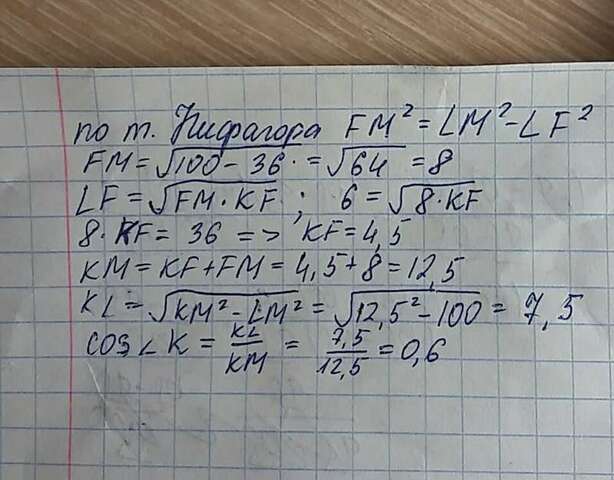 по т. Пифагора FM² = LM² - LF²
FM = √100 - 36 = √64 = 8
LF = √FM · KF ; 6 = √8 · KF
8 · KF = 36 => KF = 4,5
KM = KF + FM = 4,5 + 8 = 12,5
KL = √KM² - LM² = √12,5² - 100 = 7,5
cos∠K = KL/KM = 7,5/12,5 = 0,6